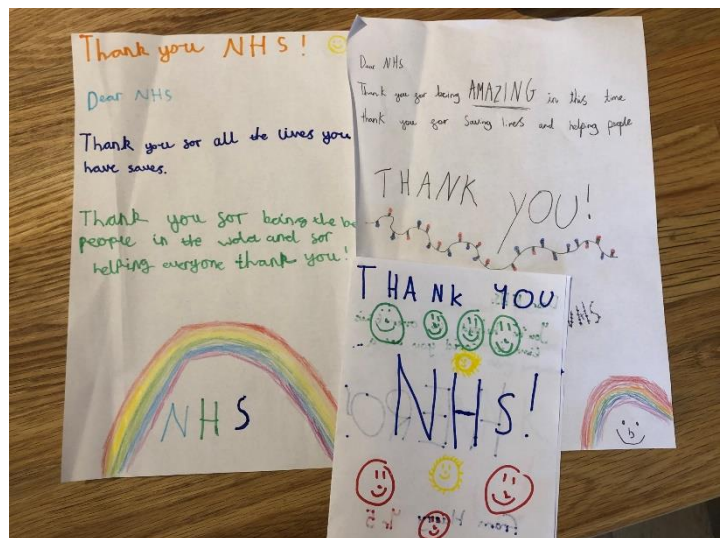 Thank you NHS!
Dear NHS
Thank you sor all the lives you
have saves.
Thank you sor being the be
people in the wold and sor
helping everyone thank you!
NHS
Dear NHS
Thank you for being AMAZING in this time
thank you for saving lives and helping people
THANK
YOU!
NHS
THANK YOU
NHS!